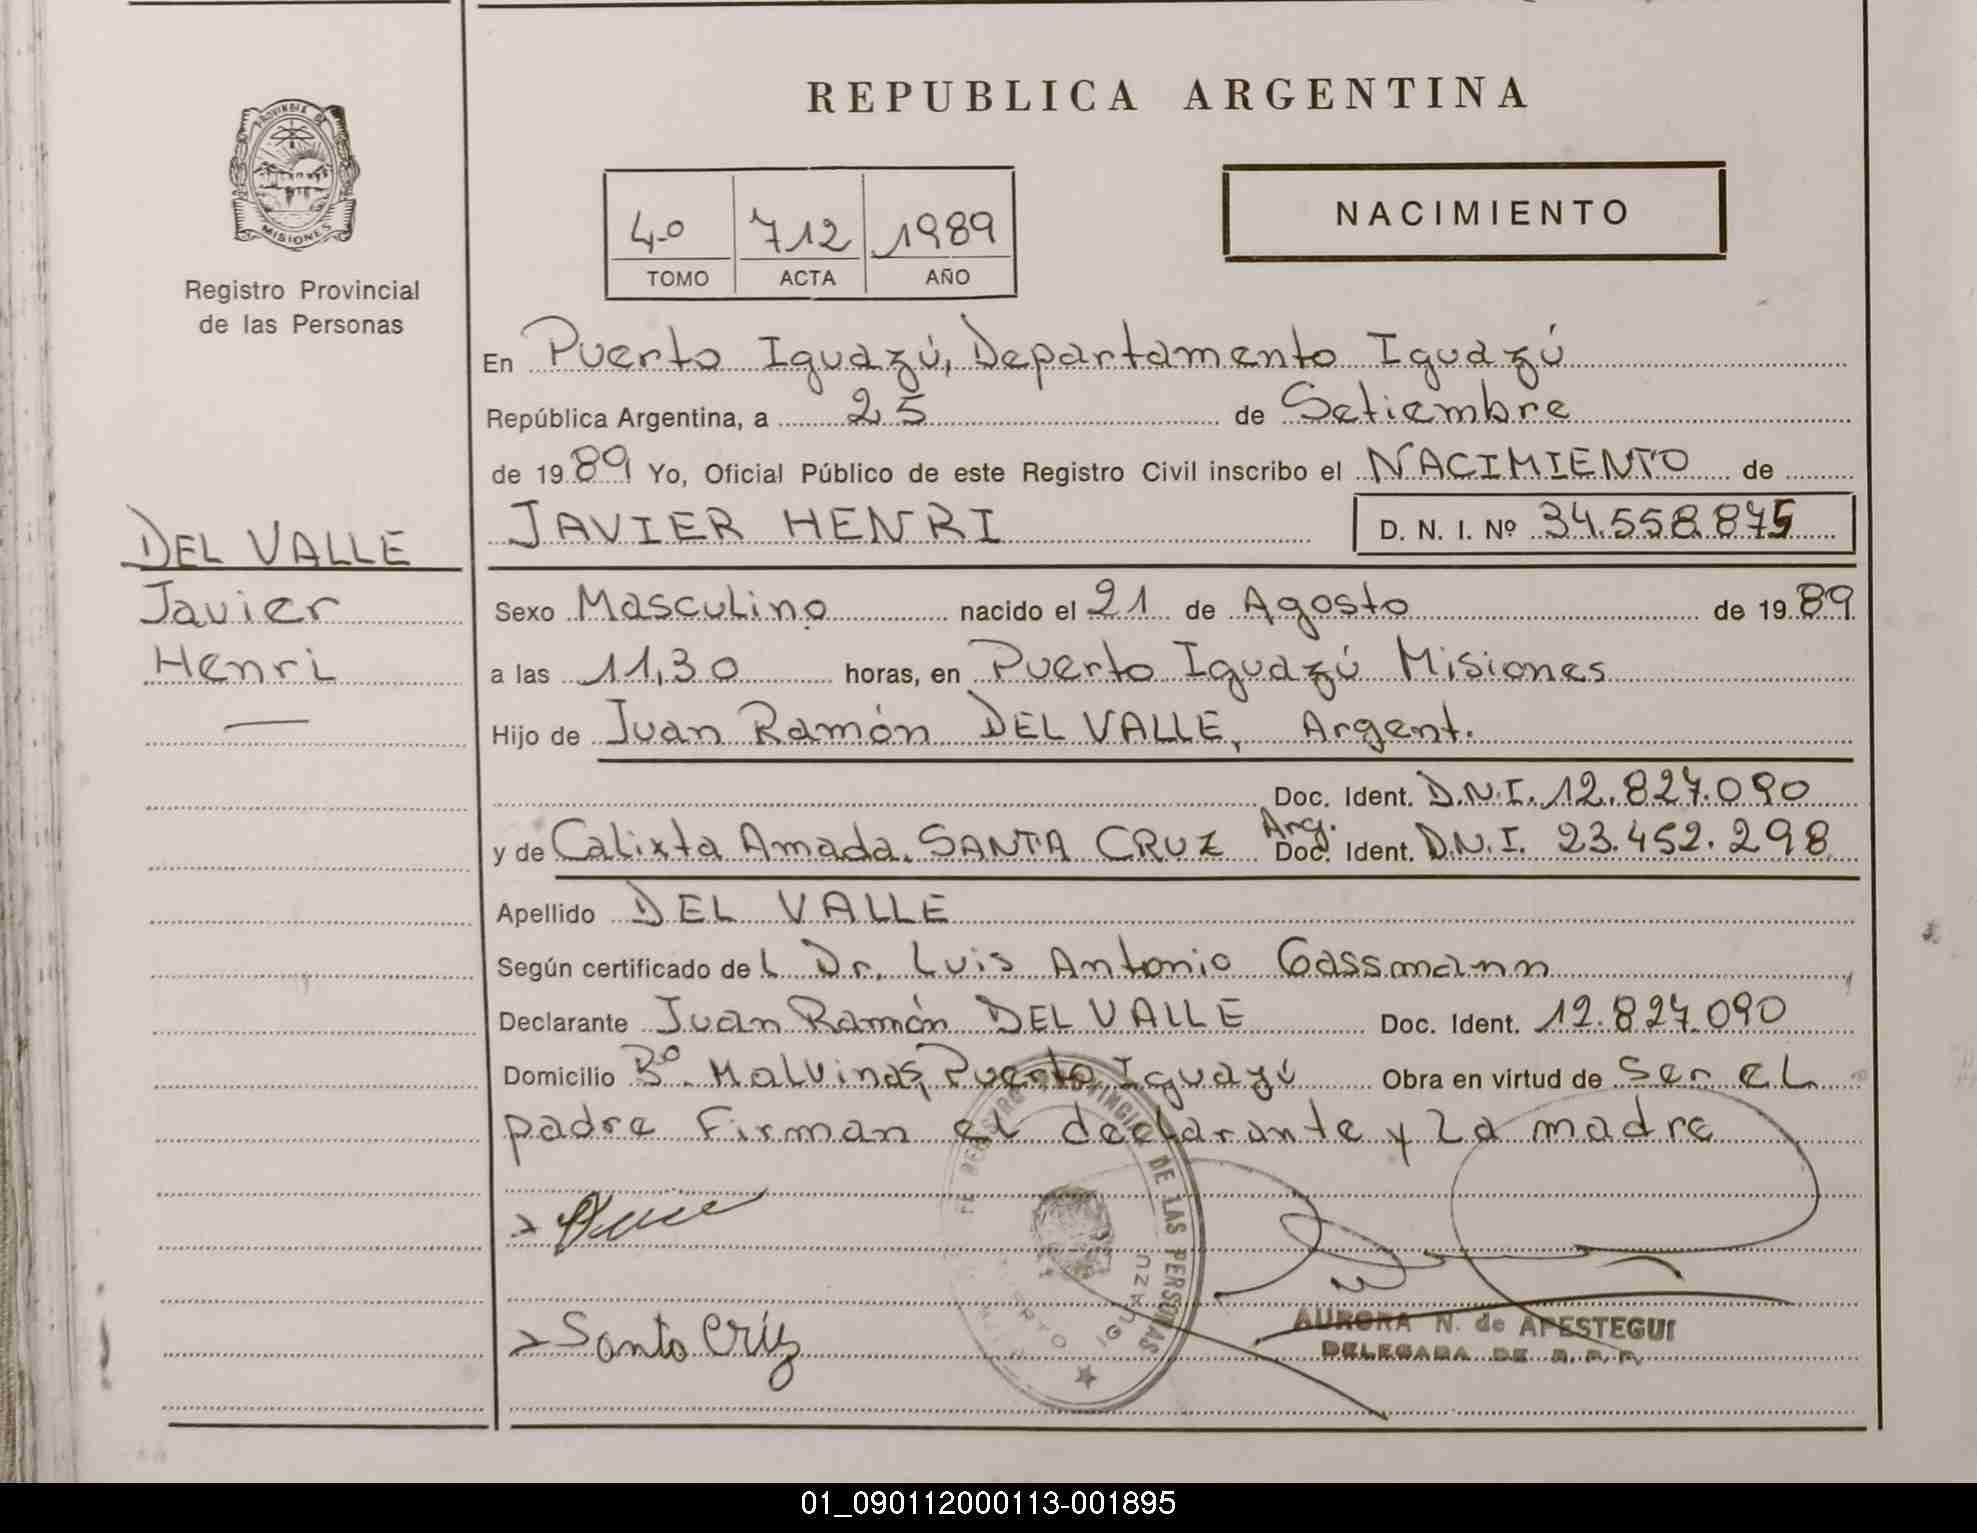 REPUBLICA ARGENTINA
PROVINCIA DE MISIONES
Registro Provincial
de las Personas
4º 712 1989
TOMO ACTA AÑO
NACIMIENTO
En Puerto Iguazú, Departamento Iguazú
República Argentina, a 25 de Setiembre
de 1989 Yo, Oficial Público de este Registro Civil inscribo el NACIMIENTO de
JAVIER HENRI D. N. I. Nº 34.558.875
DEL VALLE
Javier
Henri
Sexo Masculino nacido el 21 de Agosto de 1989
a las 11,30 horas, en Puerto Iguazú Misiones
Hijo de Juan Ramón DEL VALLE, Argent.
Doc. Ident. D.N.I. 12.827.090
y de Calixta Amada SANTA CRUZ Arg. Doc. Ident. D.N.I. 23.452.298
Apellido DEL VALLE
Según certificado del Dr. Luis Antonio Gassmann
Declarante Juan Ramón DEL VALLE Doc. Ident. 12.827.090
Domicilio Bº. Malvinas, Puerto Iguazú Obra en virtud de ser el
padre Firman el declarante y la madre
Santa Cruz
DE LAS PERSONAS
AURORA N. de APESTEGUI
DELEGADA DE R. P. P.
01_090112000113-001895